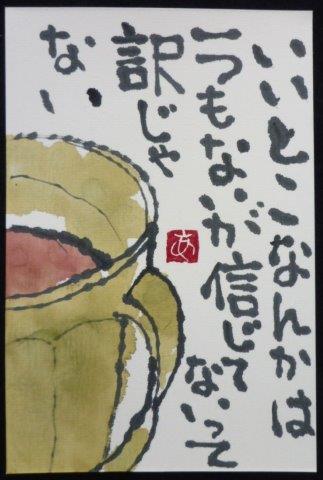 いいとこなんかは
一つもないが信じてないって
訳じゃ
ない
あ